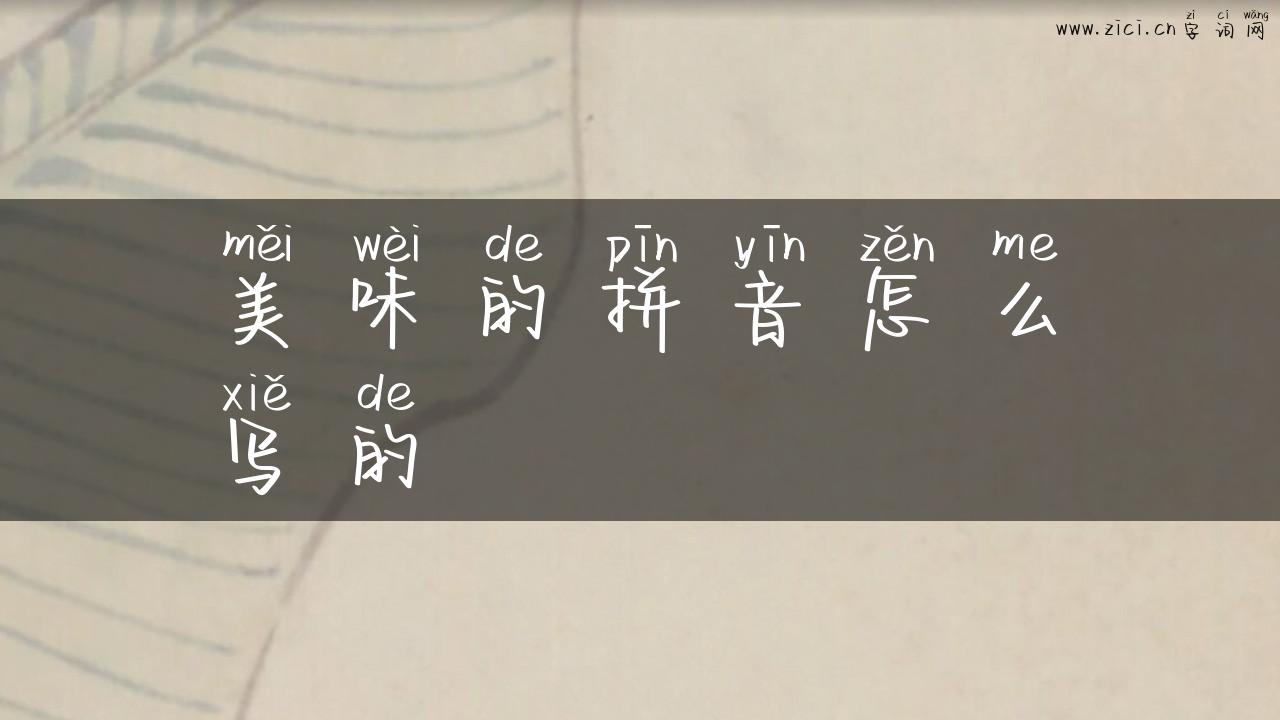 zì cí wǎng
www.zici.cn 字 词 网
měi wèi de pīn yīn zěn me
美 味 的 拼 音 怎 么
xiě de
写 的